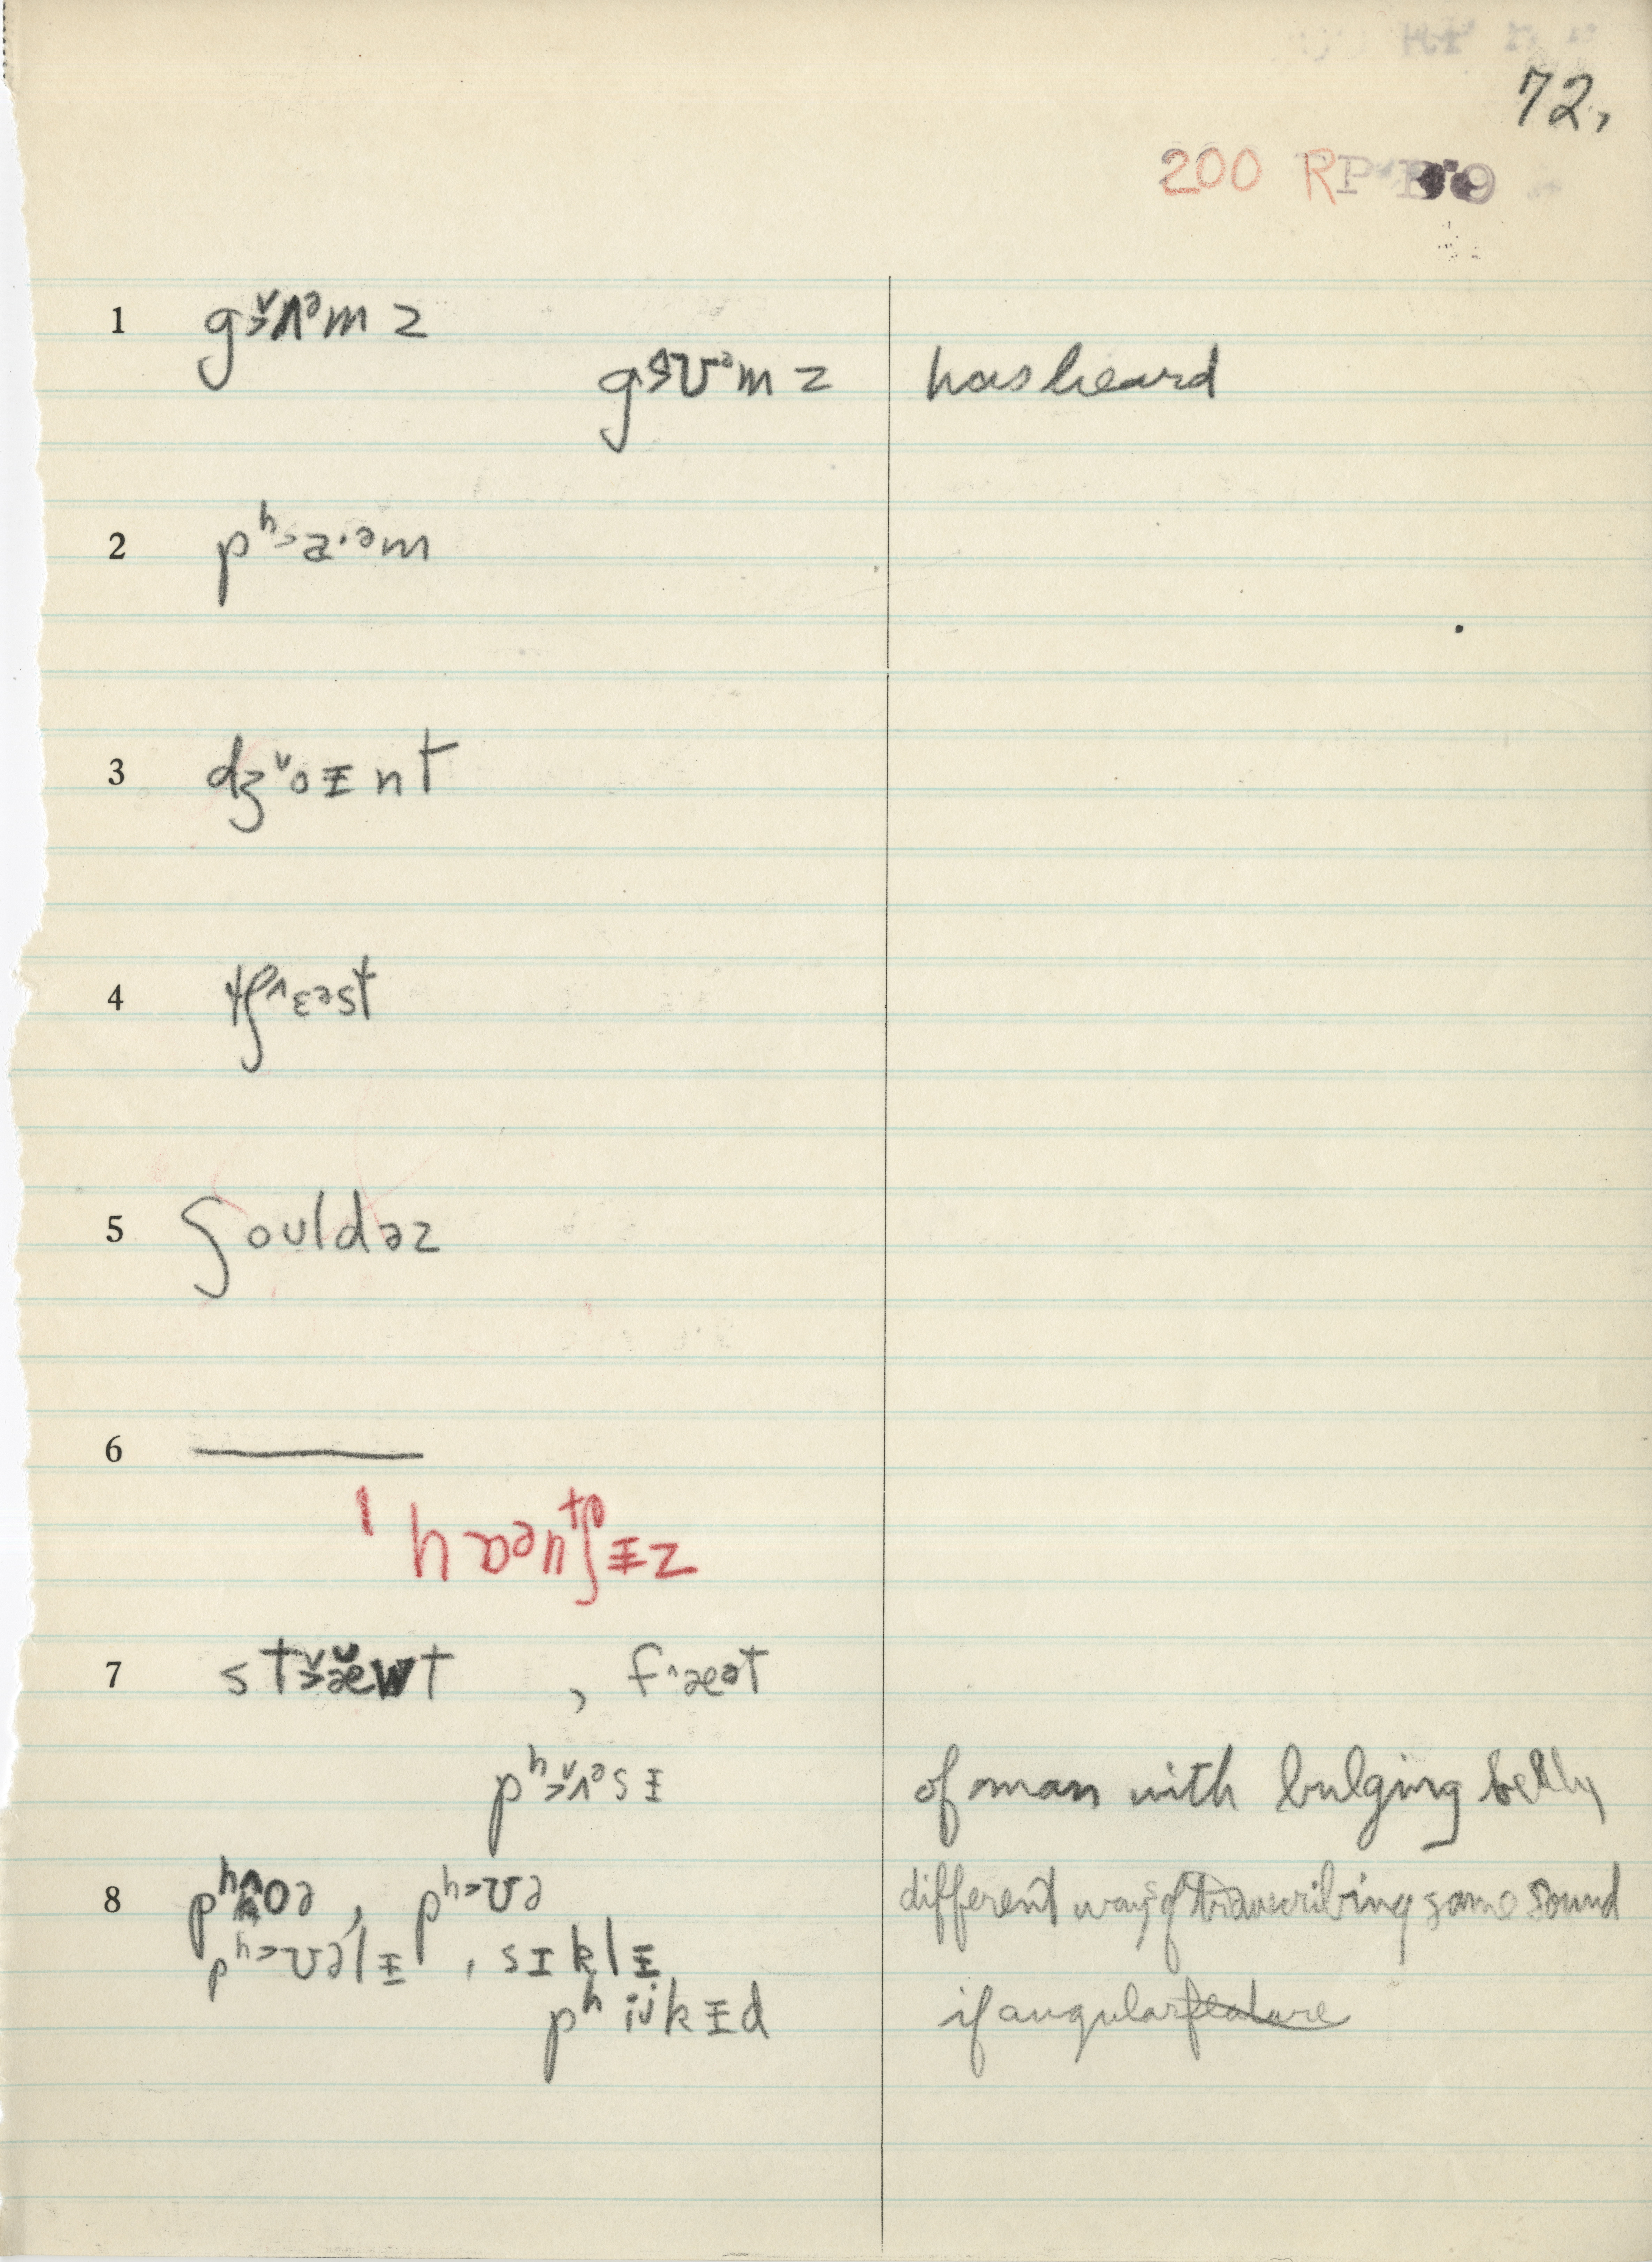 72,
200 R
1 g˃̌ʌᵊm z
gɔʊᵊm z has heard
2 pʰ˃a·ᵊm
3 dʒˇoᵻnt
4 tʃ^ɛəst
5 ʃouldəz
6 ———
hɒən tʃᵻz
7 st˃̌æ̌wt , f^æət
pʰ˃̌ʌᵊsᵻ of man with bulging belly
8 pʰoə , pʰ˃ʊə different ways of transcribing same sound
pʰ˃ʊəlᵻ , sɪklᵻ
pʰiu̇kᵻd if angular feature